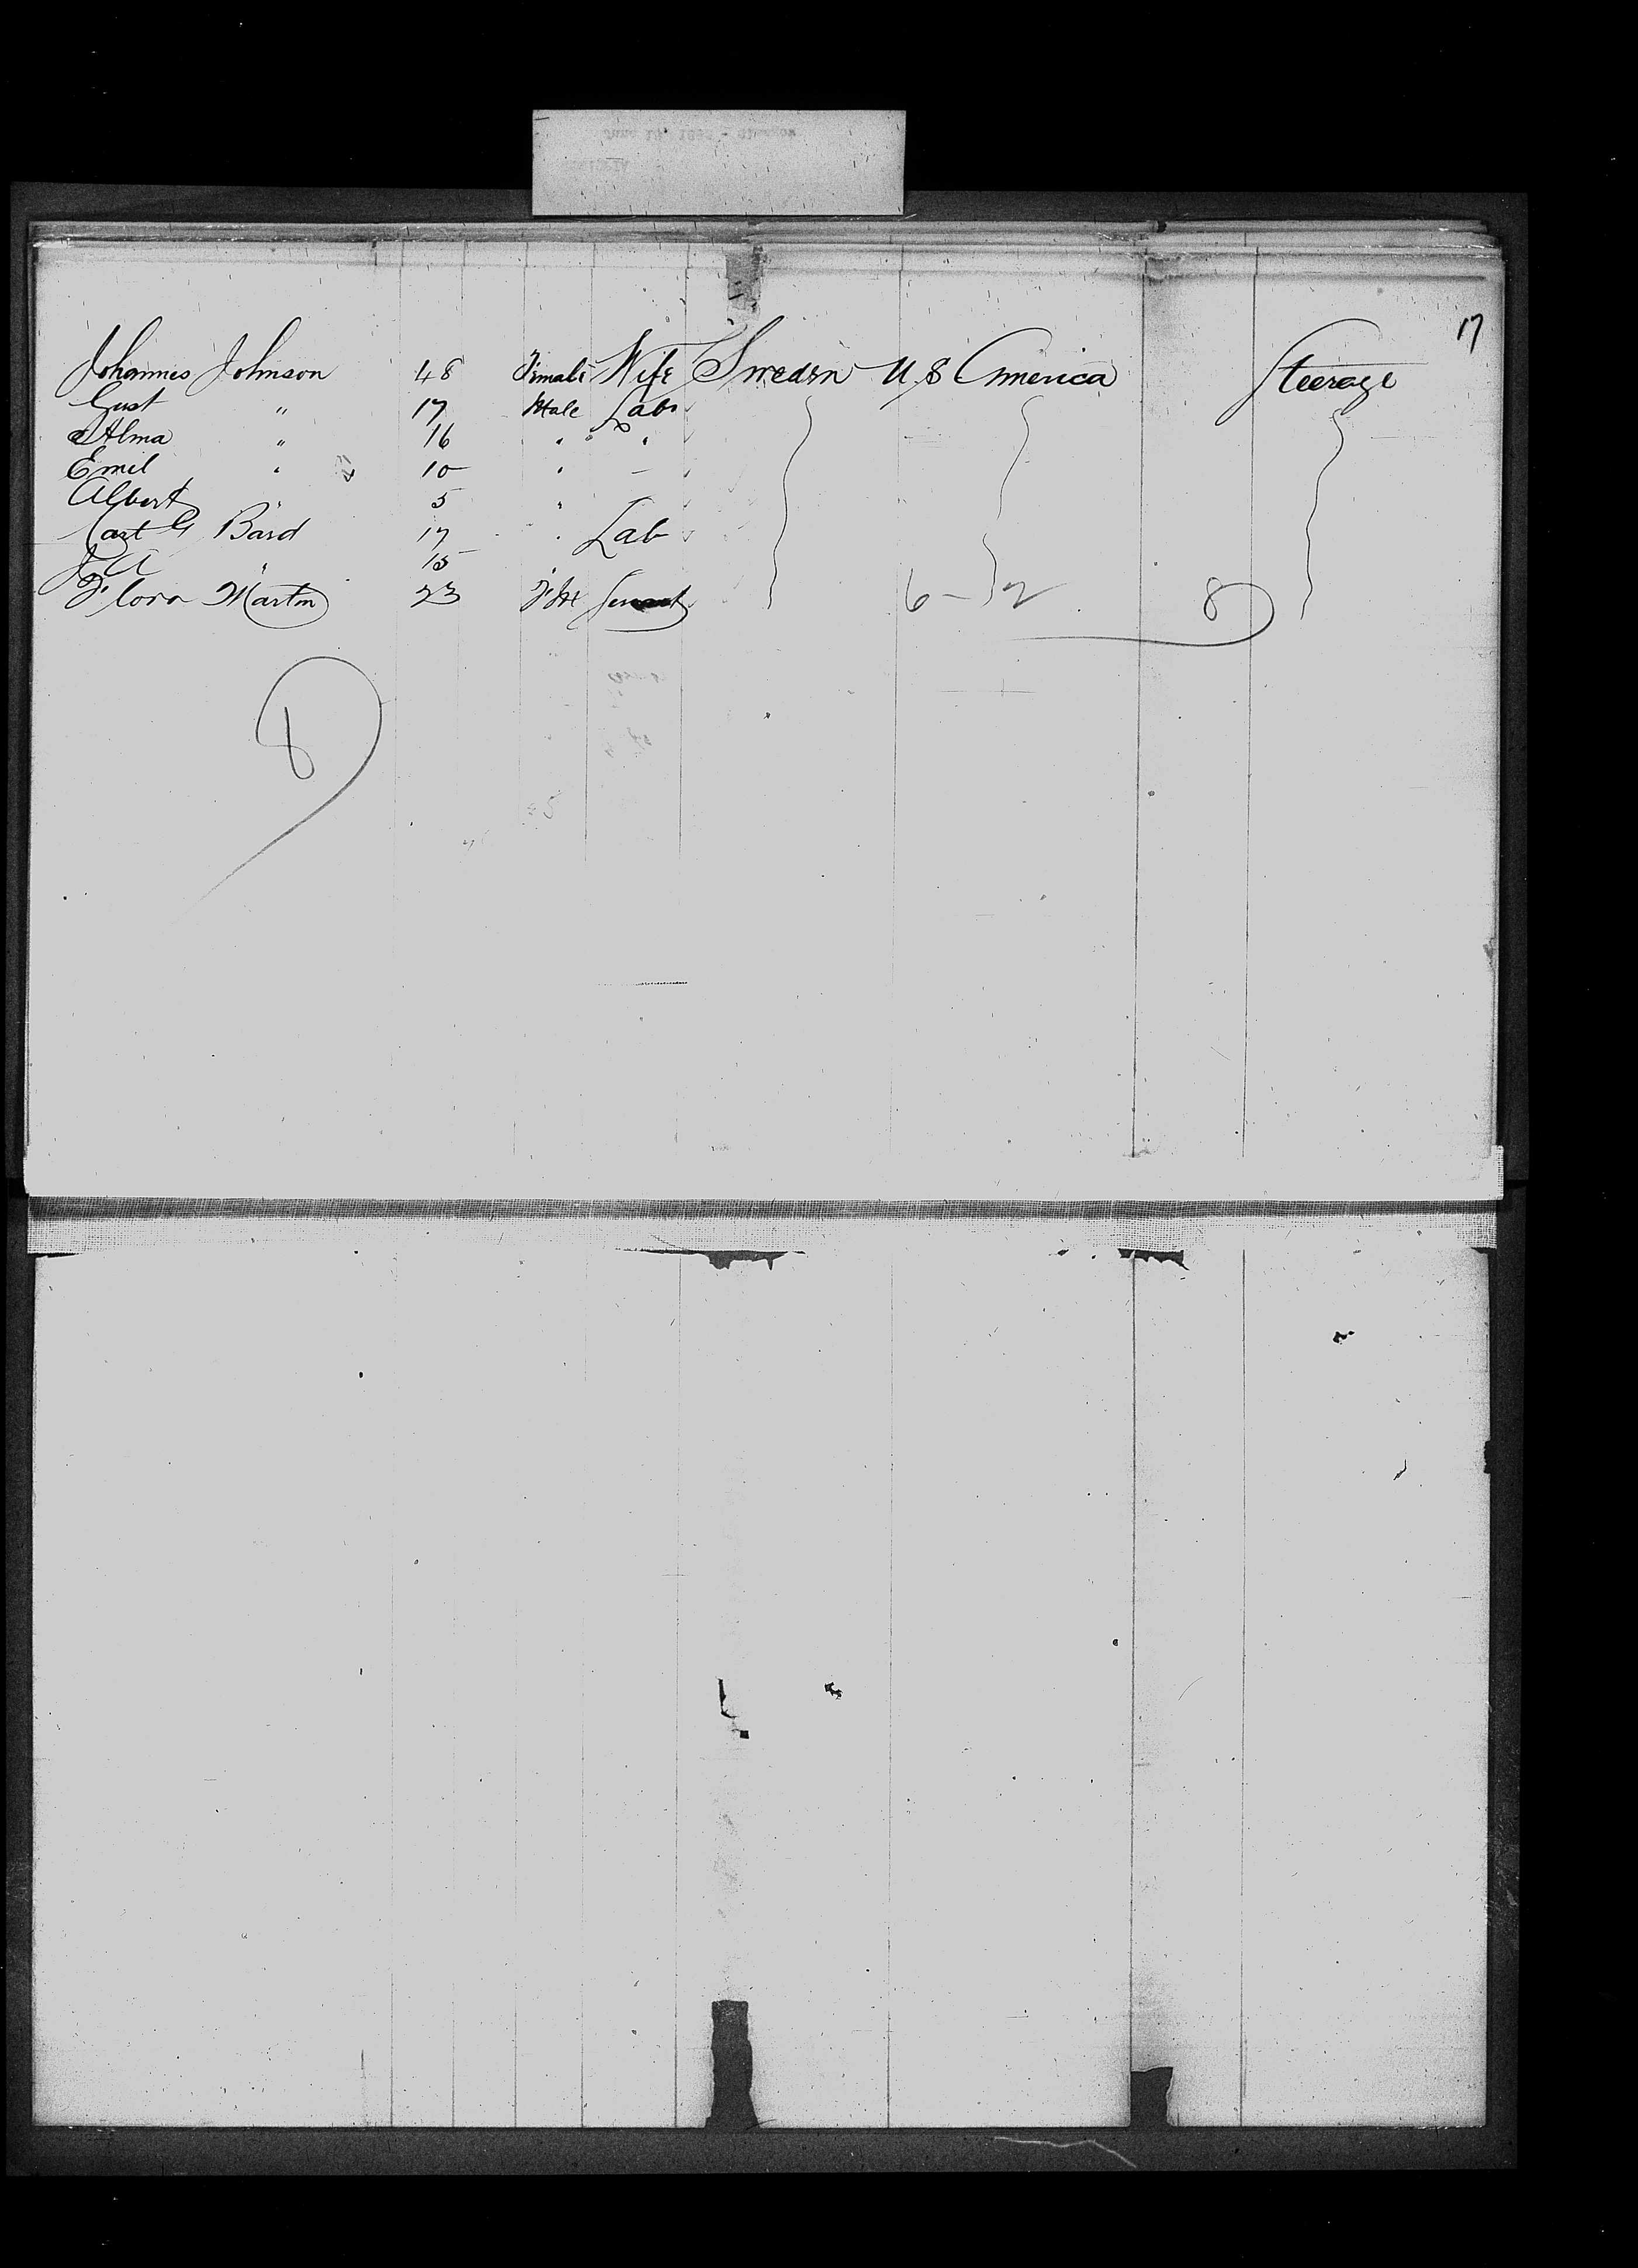 17
Johannes Johnson 48 Female Wife Sweden U.S America Steerage
Gust " 17 Male Lab
Alma " 16 " " "
Emil " 10 " —
Albert " 5 "
G Bard 17 " Lab
J A " 15
Flora Martin 23
6 - 2 8
8